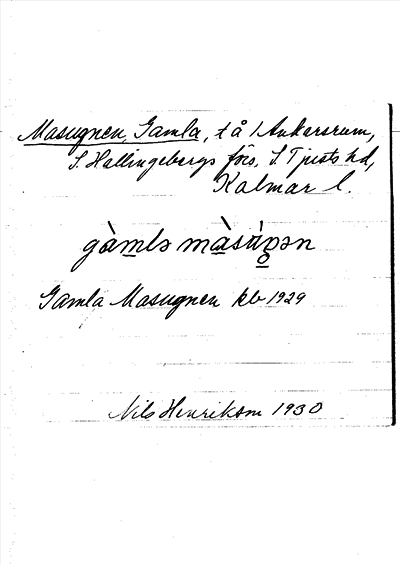 Masugnen, Gamla, t å 1 Ankarsrum,
S. Hallingebergs förs. S. Tjusts hd,
Kalmar l.
gàmlə màsúŋən
Gamla Masugnen kb 1929
Nils Henrikson 1930